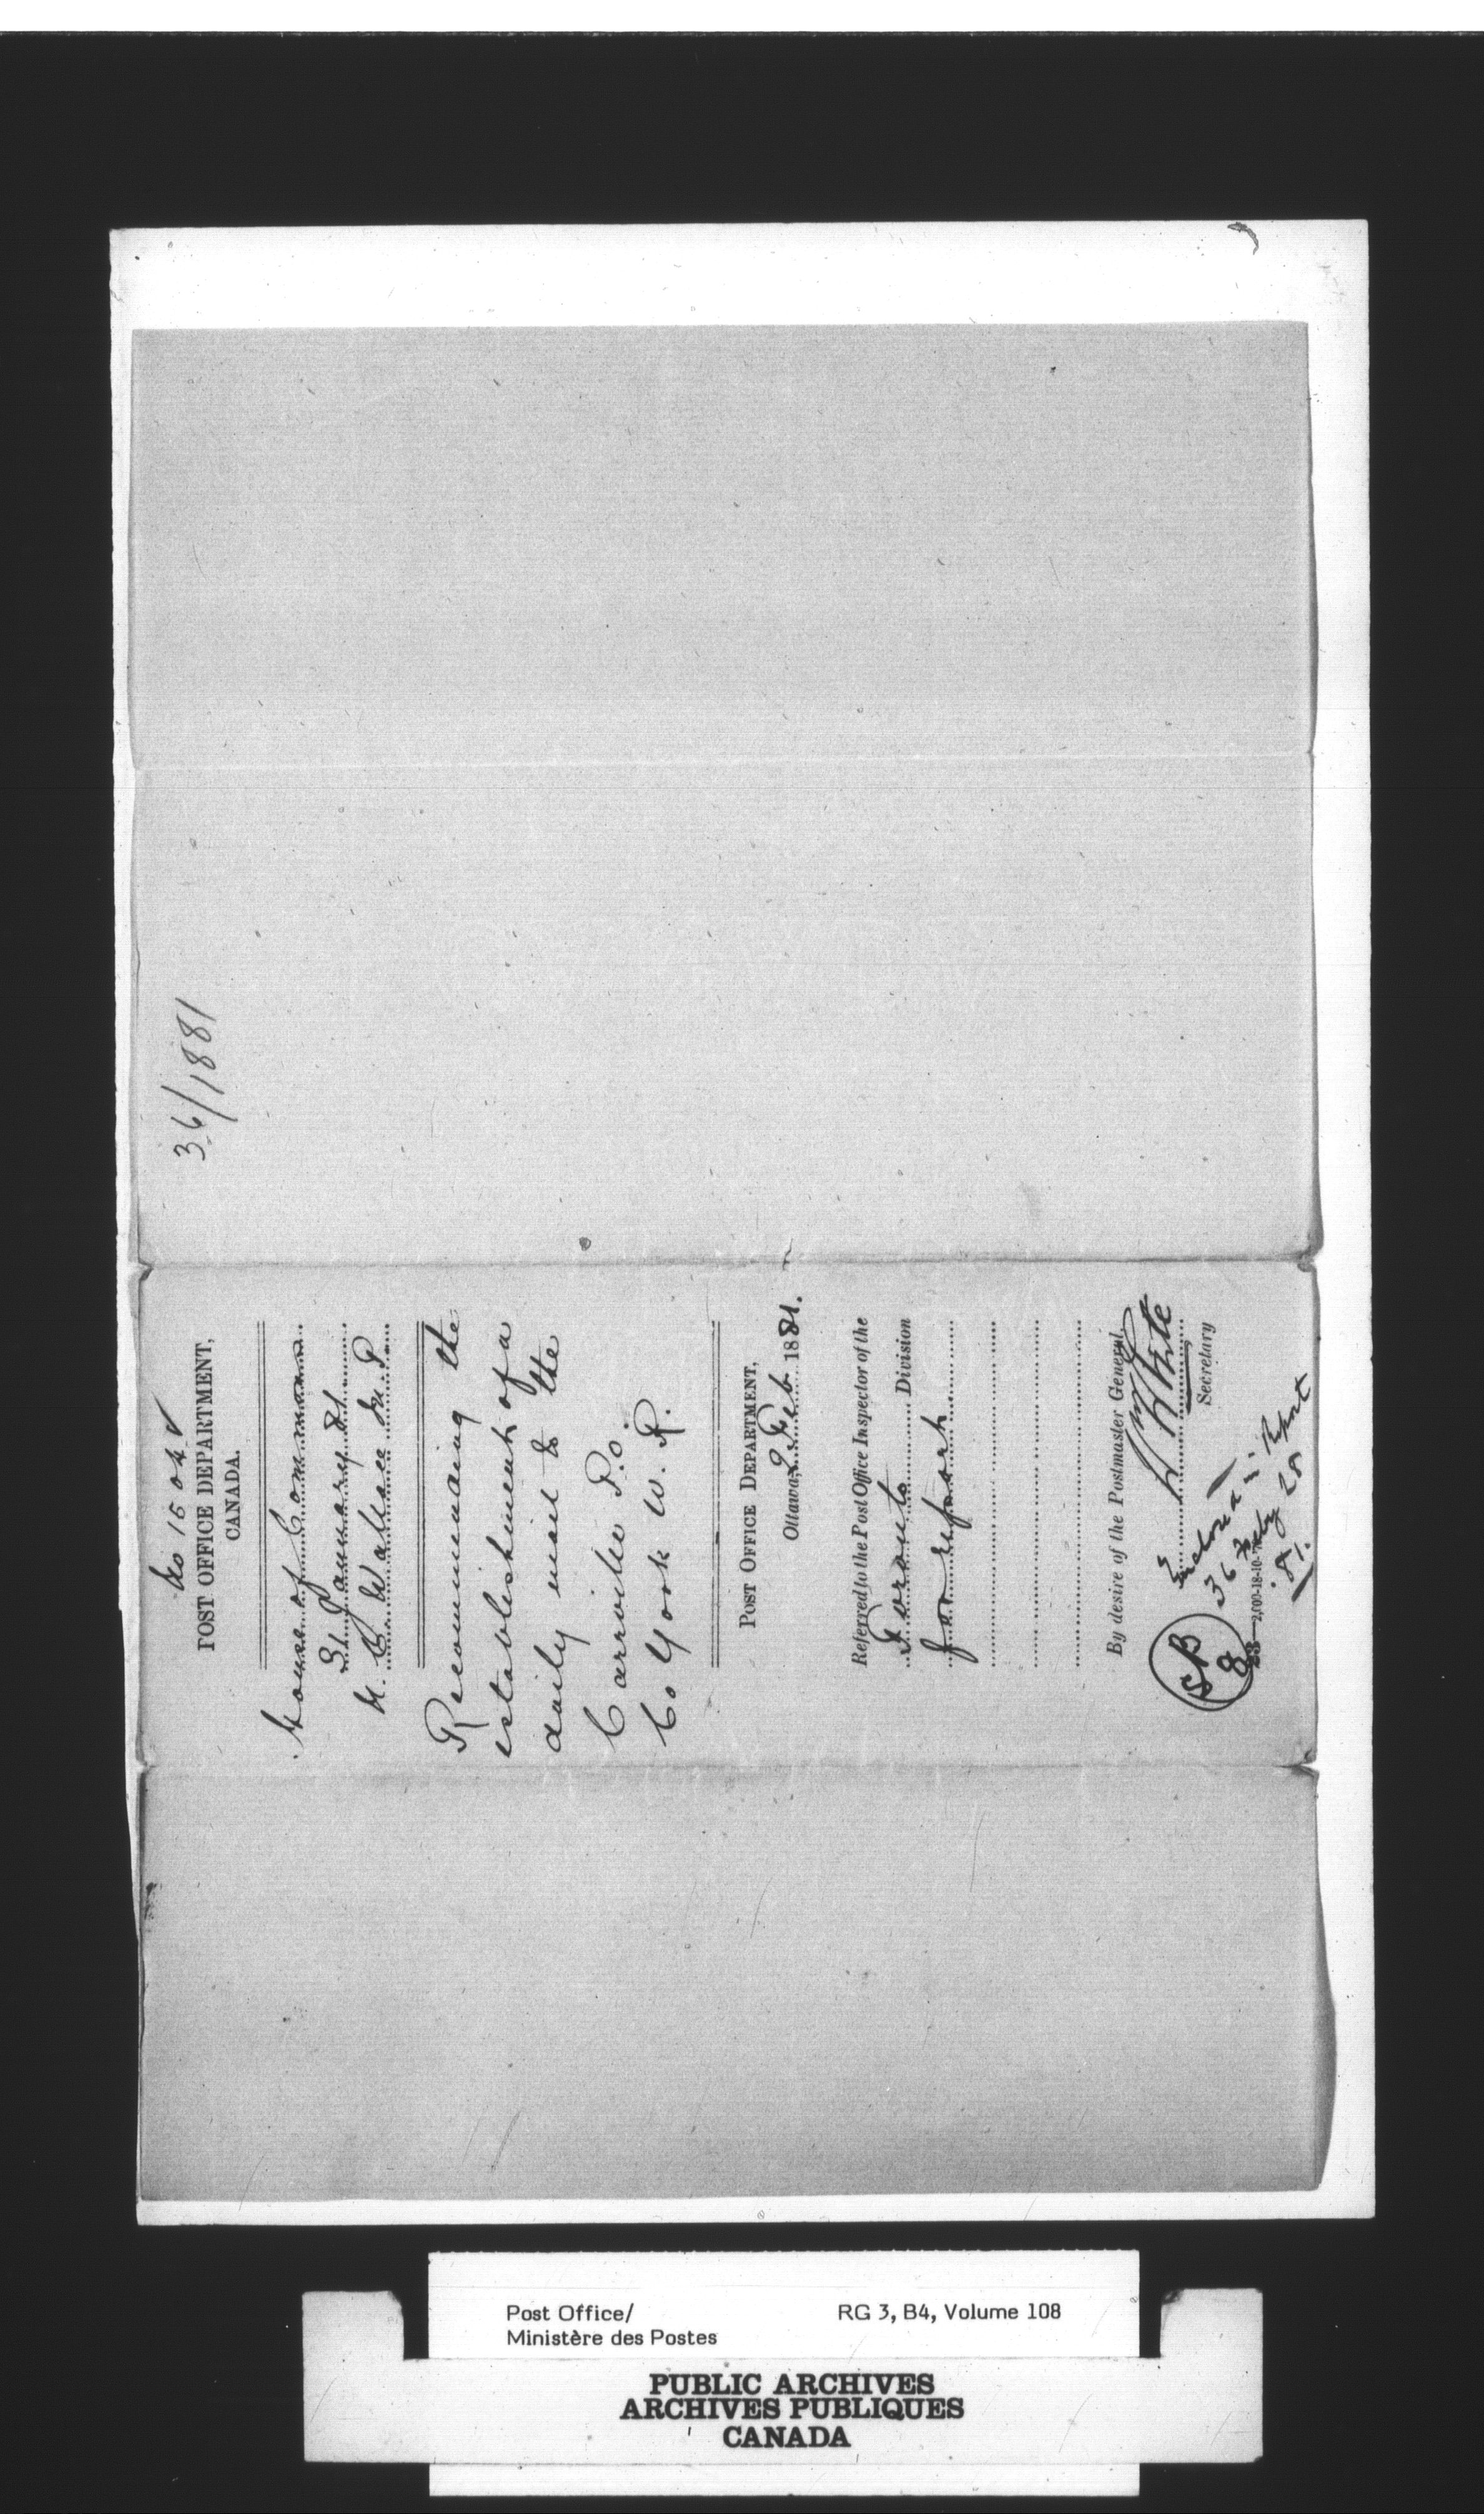 36/1881
No 1504
POST OFFICE DEPARTMENT,
CANADA.
House of Commons
31 January 81
N. C. Wallace M.P.
Recommending the
establishment of a
daily mail to the
Carrville P.O.
Co York W. R.
POST OFFICE DEPARTMENT,
Ottawa, 2 Feb 1881.
Referred to the Post Office Inspector of the
Toronto Division
for report
By desire of the Postmaster General,
White
Secretary
Enclosed in Report
36
28
81.
SB
8
Post Office/ RG 3, B4, Volume 108
Ministère des Postes
PUBLIC ARCHIVES
ARCHIVES PUBLIQUES
CANADA